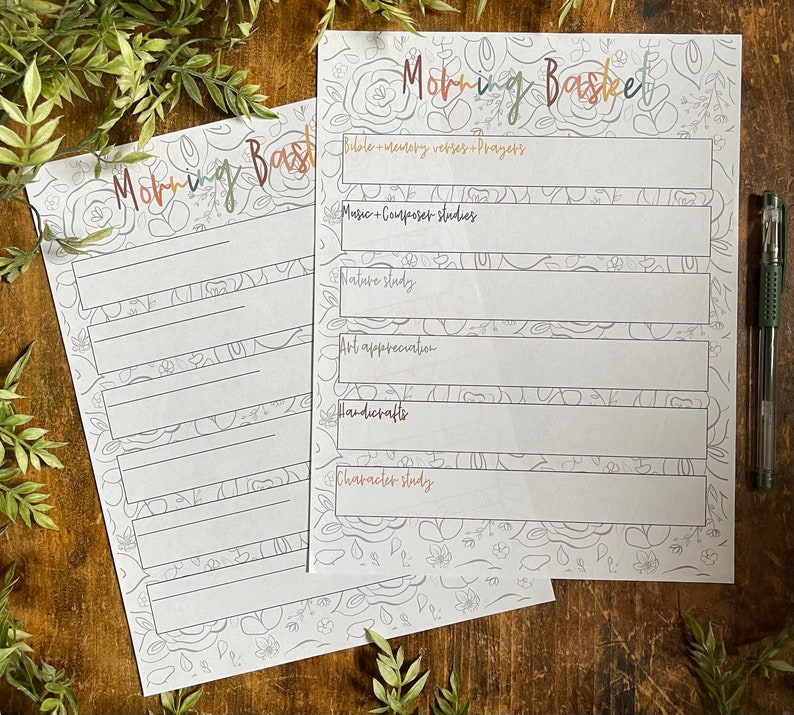 Morning Basket
Bible+memory verses+Prayers
Music+Composer studies
Nature study
Art appreciation
Handicrafts
Character study
Morning Bask